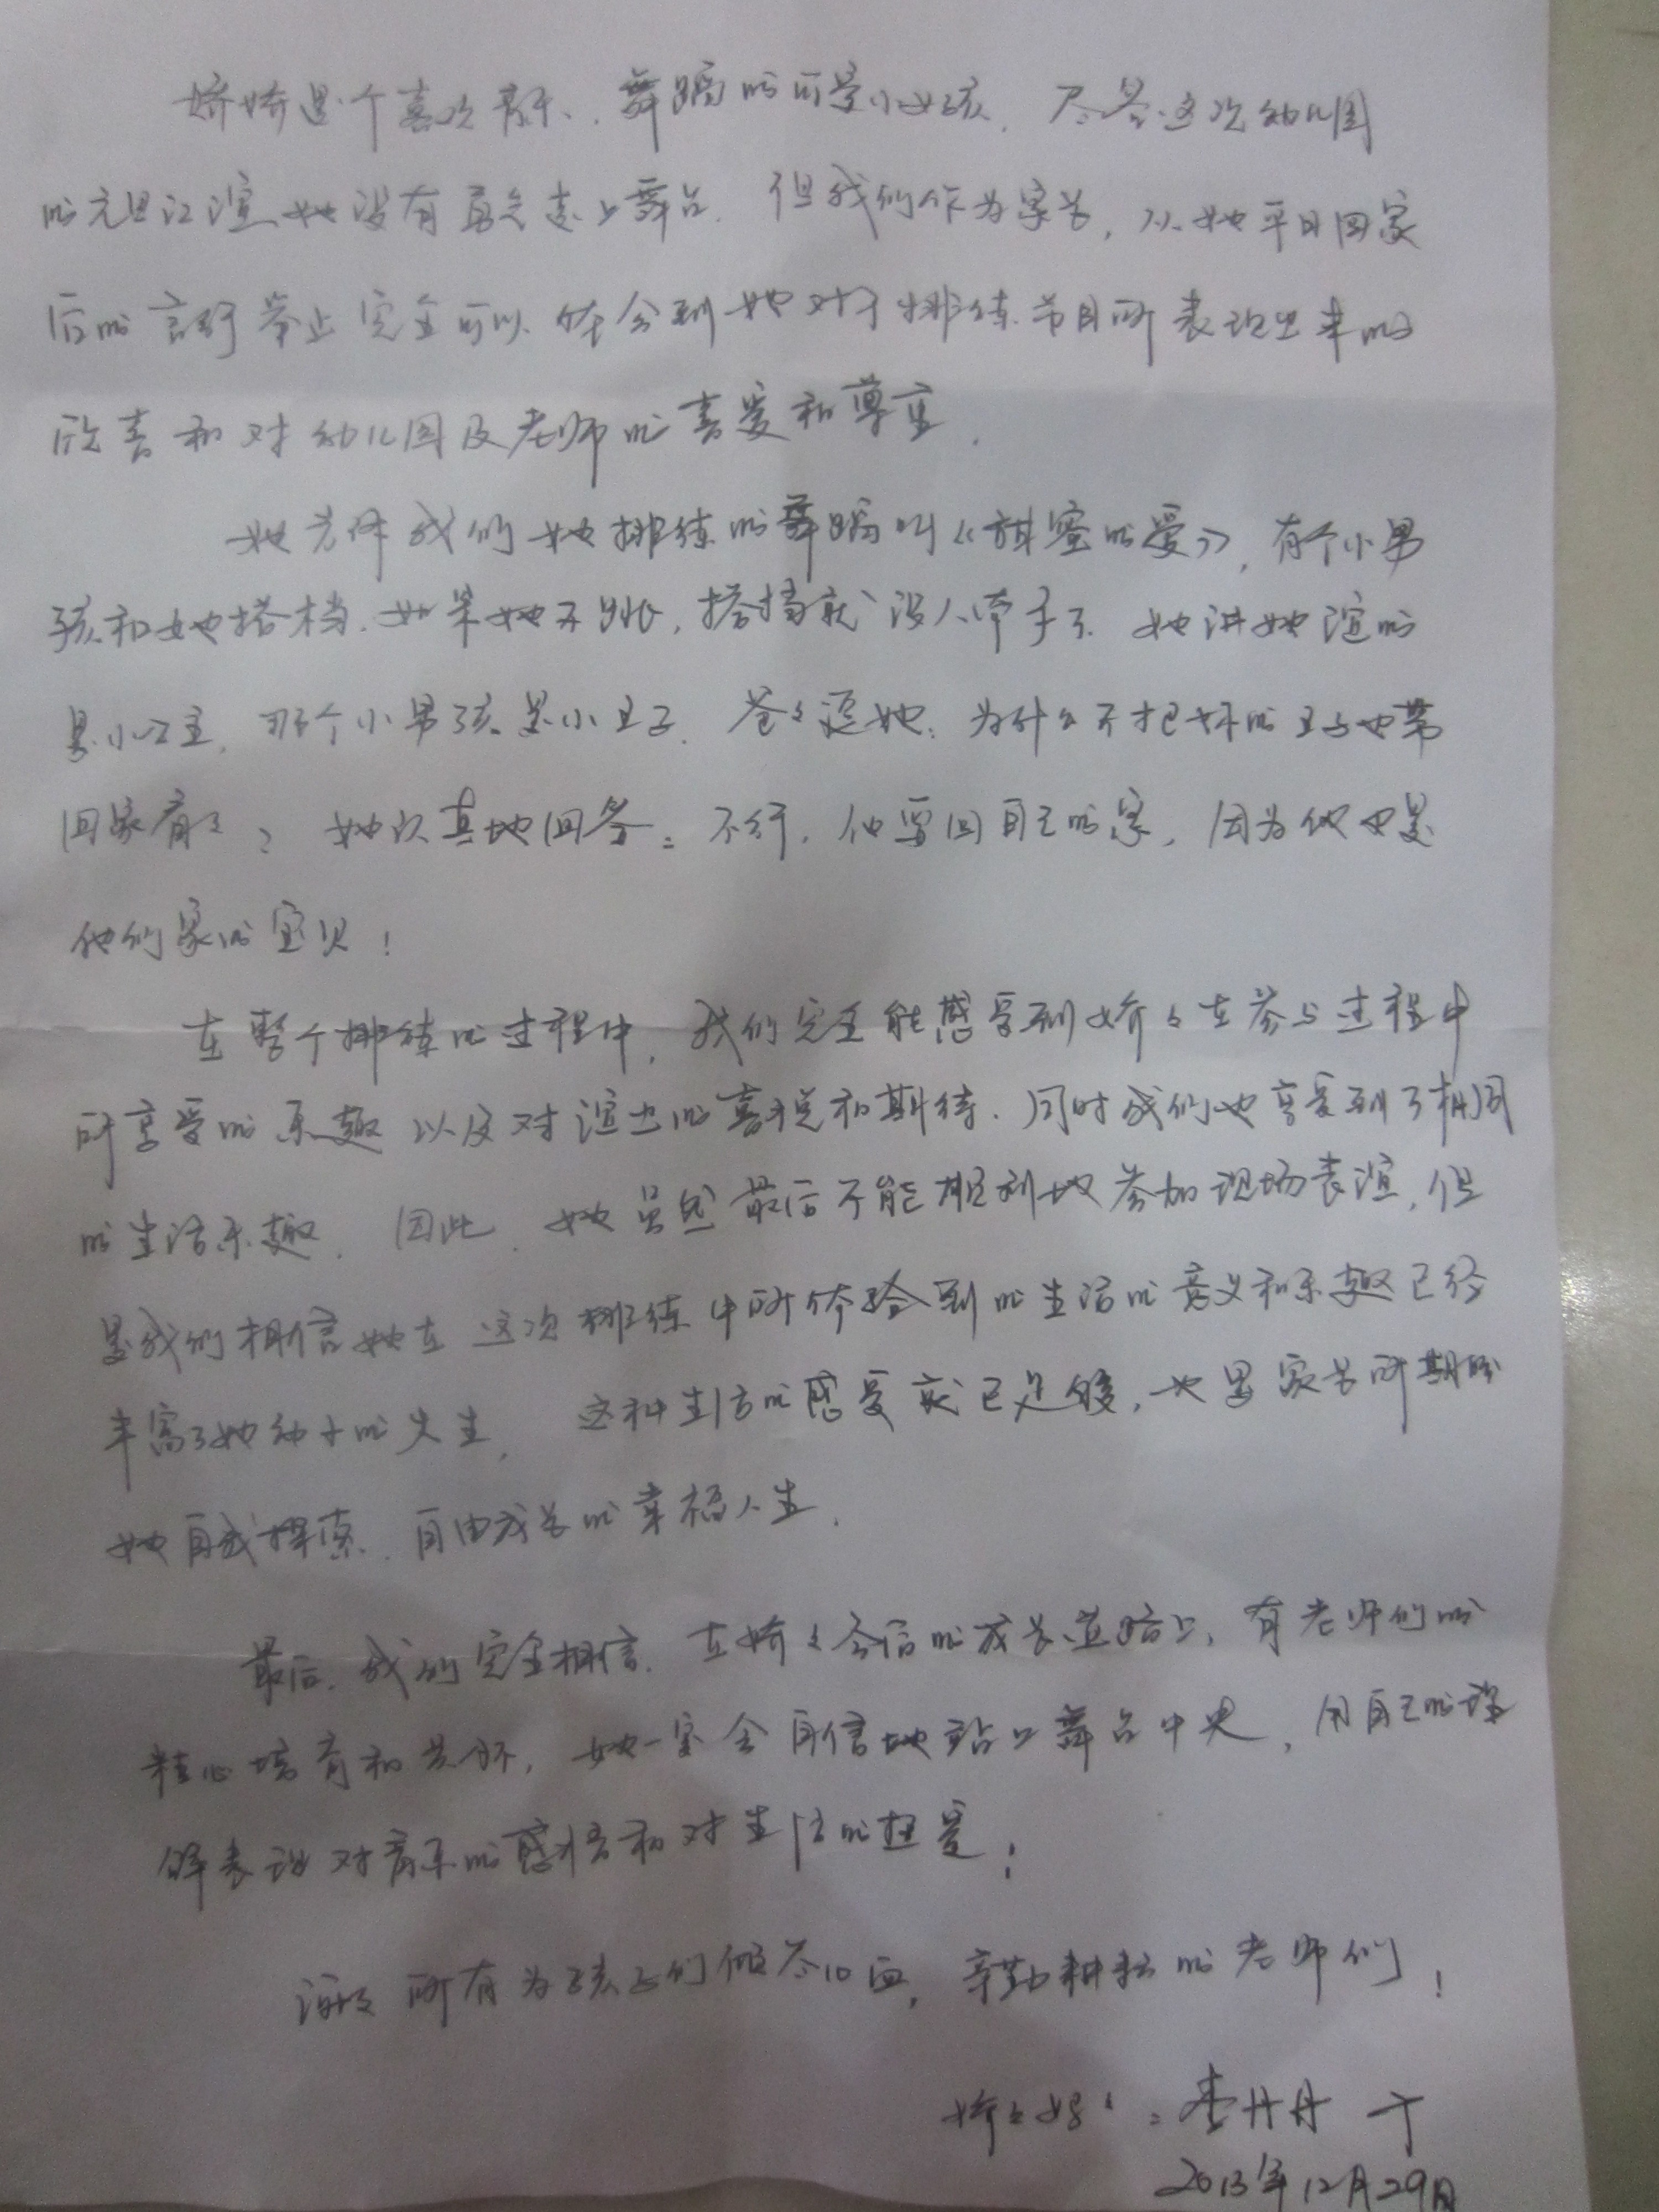 娇娇是个喜欢音乐、舞蹈的可爱小女孩，尽管这次幼儿园
的元旦汇演她没有勇气走上舞台，但我们作为家长，从她平日回家
后的言行举止完全可以体会到她对于排练节目所表现出来的
欣喜和对幼儿园及老师的喜爱和尊重。
她告诉我们她排练的舞蹈叫《甜蜜的爱》，有个小男
孩和她搭档，如果她不跳，搭档就没人牵手了。她讲她演的
是小公主，那个小男孩是小王子。爸爸逗她：为什么不把你的王子也带
回家看看？她认真地回答：不行，他要回自己的家，因为他也是
他们家的宝贝！
在整个排练的过程中，我们完全能感受到娇娇在参与过程中
所享受的乐趣以及对演出的喜悦和期待，同时我们也享受到了相同
的生活乐趣。因此，她虽然最后不能顺利地参加现场表演，但
是我们相信她在这次排练中所体验到的生活的意义和乐趣已经
丰富了她幼小的人生，这种生活的感受就已足够，也是家长所期盼
她自我探索、自由成长的幸福人生。
最后，我们完全相信，在娇娇今后的成长道路上，有老师们的
精心培育和关怀，她一定会自信地站上舞台中央，用自己的理
解表现对音乐的感悟和对生活的热爱！
谢谢所有为孩子们倾尽心血，辛勤耕耘的老师们！
娇娇妈妈：李丹丹 于
2013年12月29日